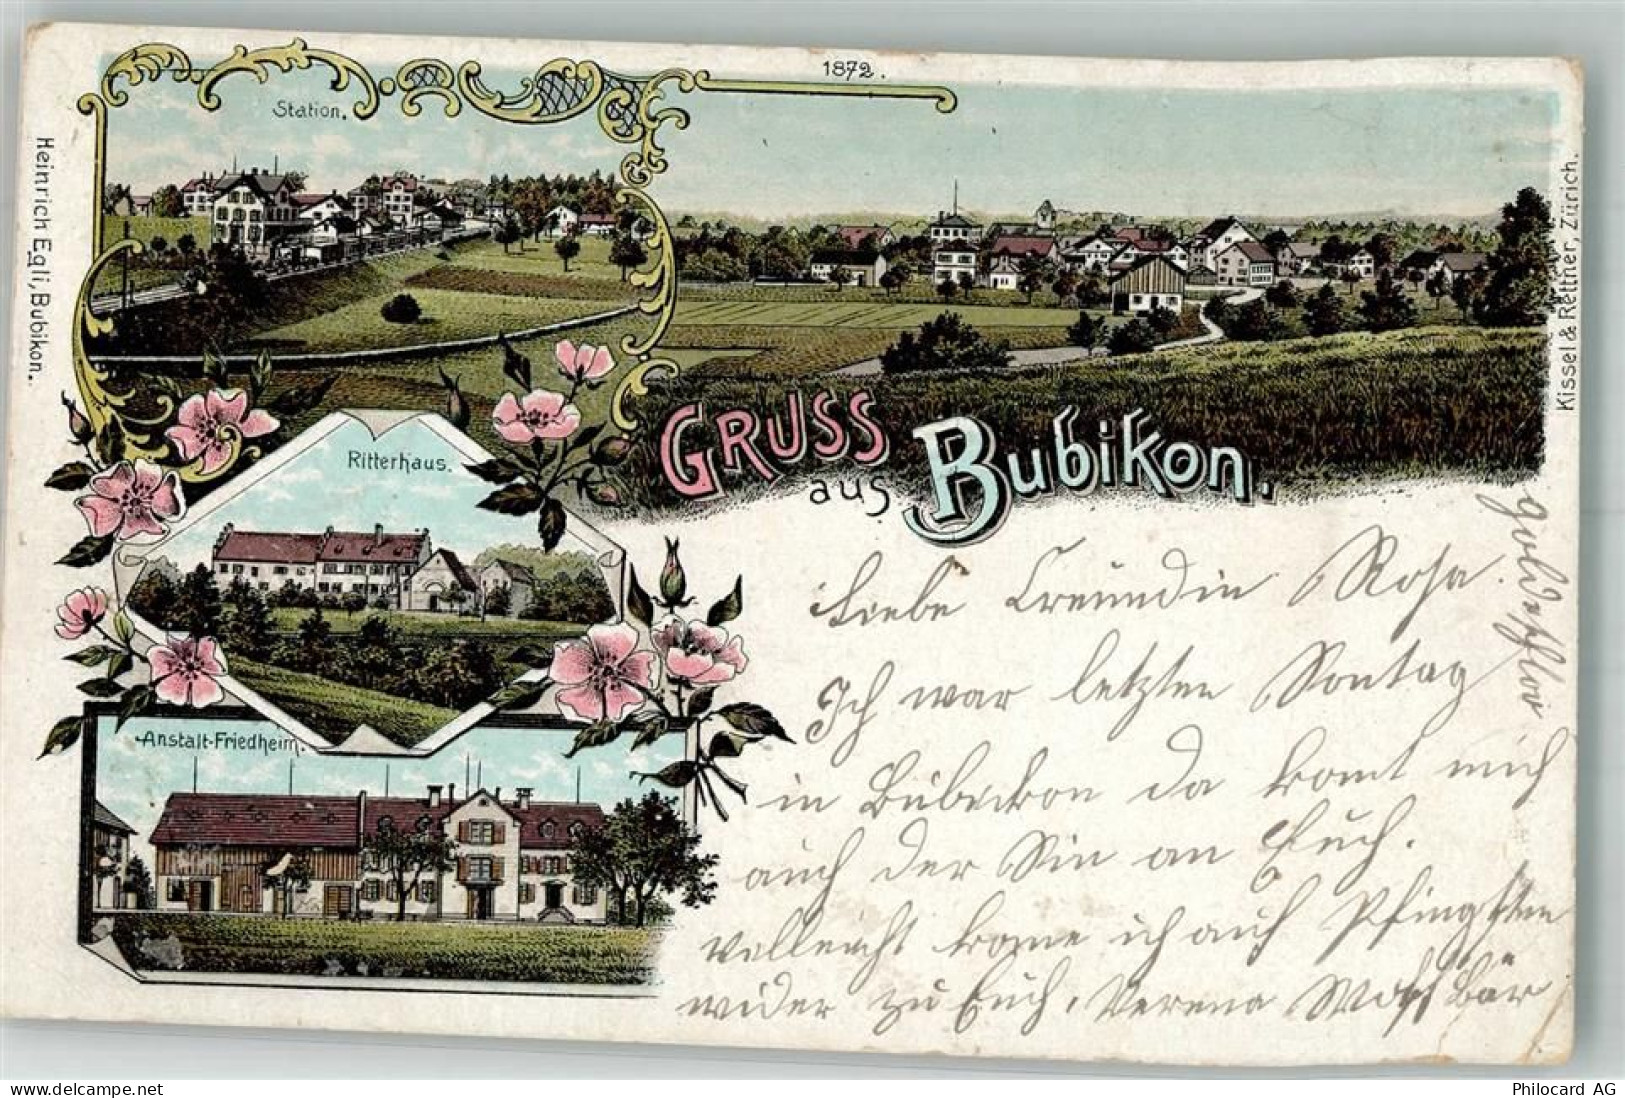 1872.
Station.
Heinrich Egli, Bubikon.
Kissel & Rettner, Zürich.
Gruss
aus Bubikon.
Ritterhaus.
Anstalt-Friedheim.
Liebe Freundin Rosa.
Ich war letzten Sontag
in Bubickon da komt mich
auch der Sin an Euch.
velleicht kome ich auf Pfingsten
wider zu Euch. Verena
Philocard AG